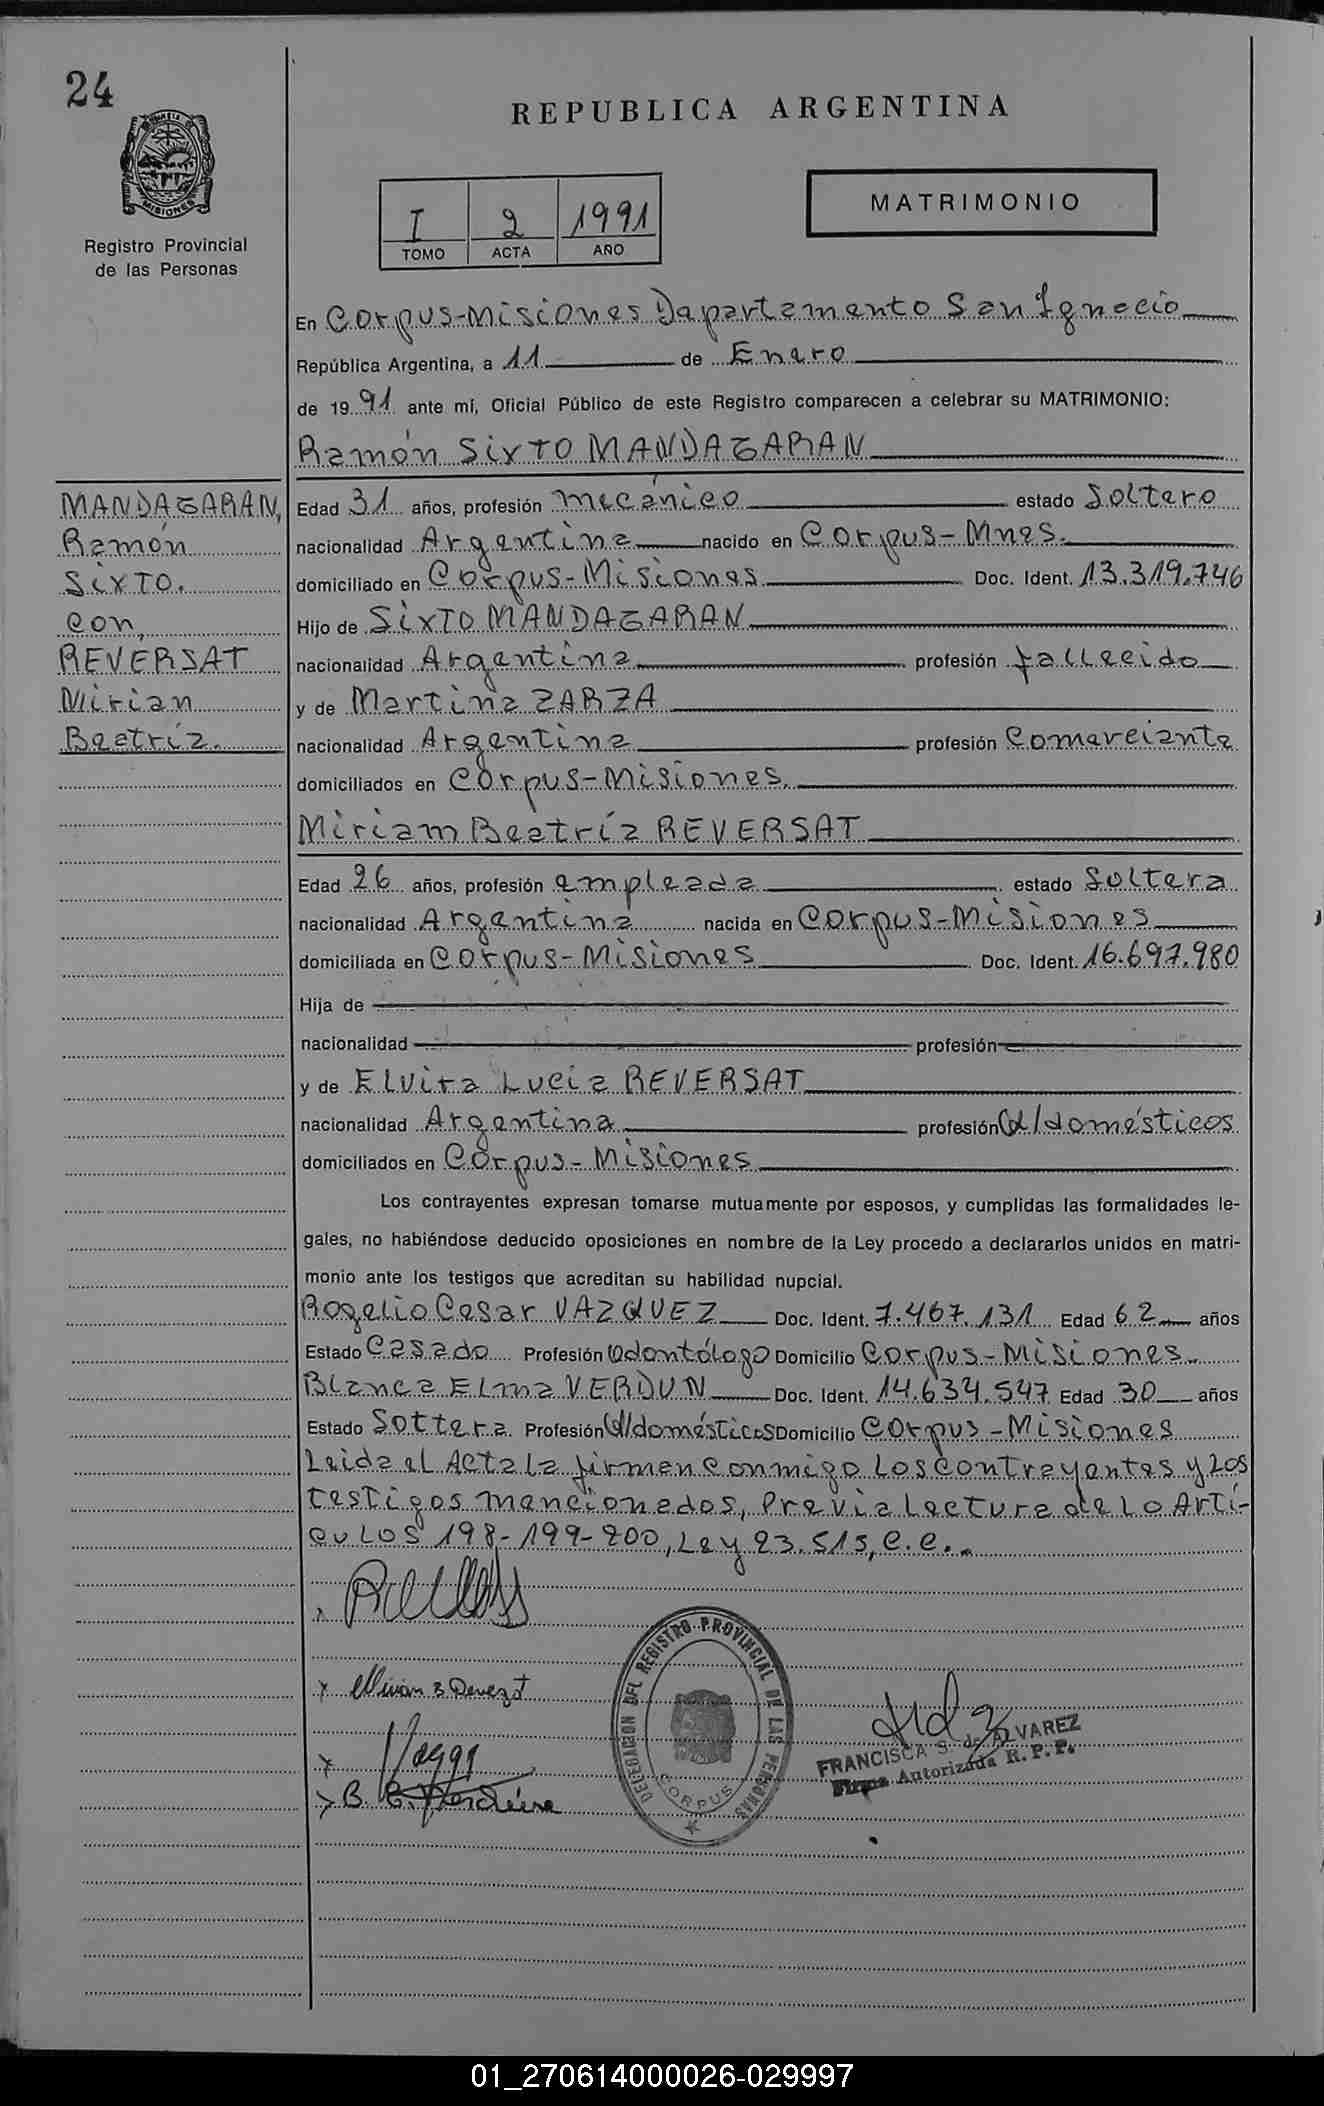 24
REPUBLICA ARGENTINA
MISIONES
Registro Provincial
de las Personas
I 2 1991
TOMO ACTA AÑO
MATRIMONIO
En Corpus-Misiones Departamento San Ignacio
República Argentina, a 11 de Enero
de 1991 ante mí, Oficial Público de este Registro comparecen a celebrar su MATRIMONIO:
Ramón Sixto MANDAGARAN
MANDAGARAN,
Ramón
Sixto.
con,
REVERSAT
Mirian
Beatríz.
Edad 31 años, profesión mecánico estado Soltero
nacionalidad Argentina nacido en Corpus-Mnes.
domiciliado en Corpus-Misiones Doc. Ident. 13.319.746
Hijo de Sixto MANDAGARAN
nacionalidad Argentina profesión fallecido
y de Martina ZARZA
nacionalidad Argentina profesión Comerciante
domiciliados en Corpus-Misiones.
Miriam Beatríz REVERSAT
Edad 26 años, profesión empleada estado Soltera
nacionalidad Argentina nacida en Corpus-Misiones
domiciliada en Corpus-Misiones Doc. Ident. 16.697.980
Hija de
nacionalidad profesión
y de Elvira Lucia REVERSAT
nacionalidad Argentina profesión Q/domésticos
domiciliados en Corpus-Misiones
Los contrayentes expresan tomarse mutuamente por esposos, y cumplidas las formalidades le-
gales, no habiéndose deducido oposiciones en nombre de la Ley procedo a declararlos unidos en matri-
monio ante los testigos que acreditan su habilidad nupcial.
Rogelio Cesar VAZQUEZ Doc. Ident. 7.467.131 Edad 62 años
Estado Casado Profesión Odontólogo Domicilio Corpus-Misiones.
Blanca Elma VERDUN Doc. Ident. 14.634.547 Edad 30 años
Estado Soltera Profesión Q/domésticos Domicilio Corpus-Misiones
Leida el Acta la firman conmigo los contrayentes y los
testigos mencionados, Previa lectura de lo Artí-
culos 198-199-200, Ley 23.515, C.C..
DELEGACION DEL REGISTRO PROVINCIAL DE LAS PERSONAS
CORPUS
FRANCISCA S. de ALVAREZ
Firma Autorizada R. P. P.
01_270614000026-029997